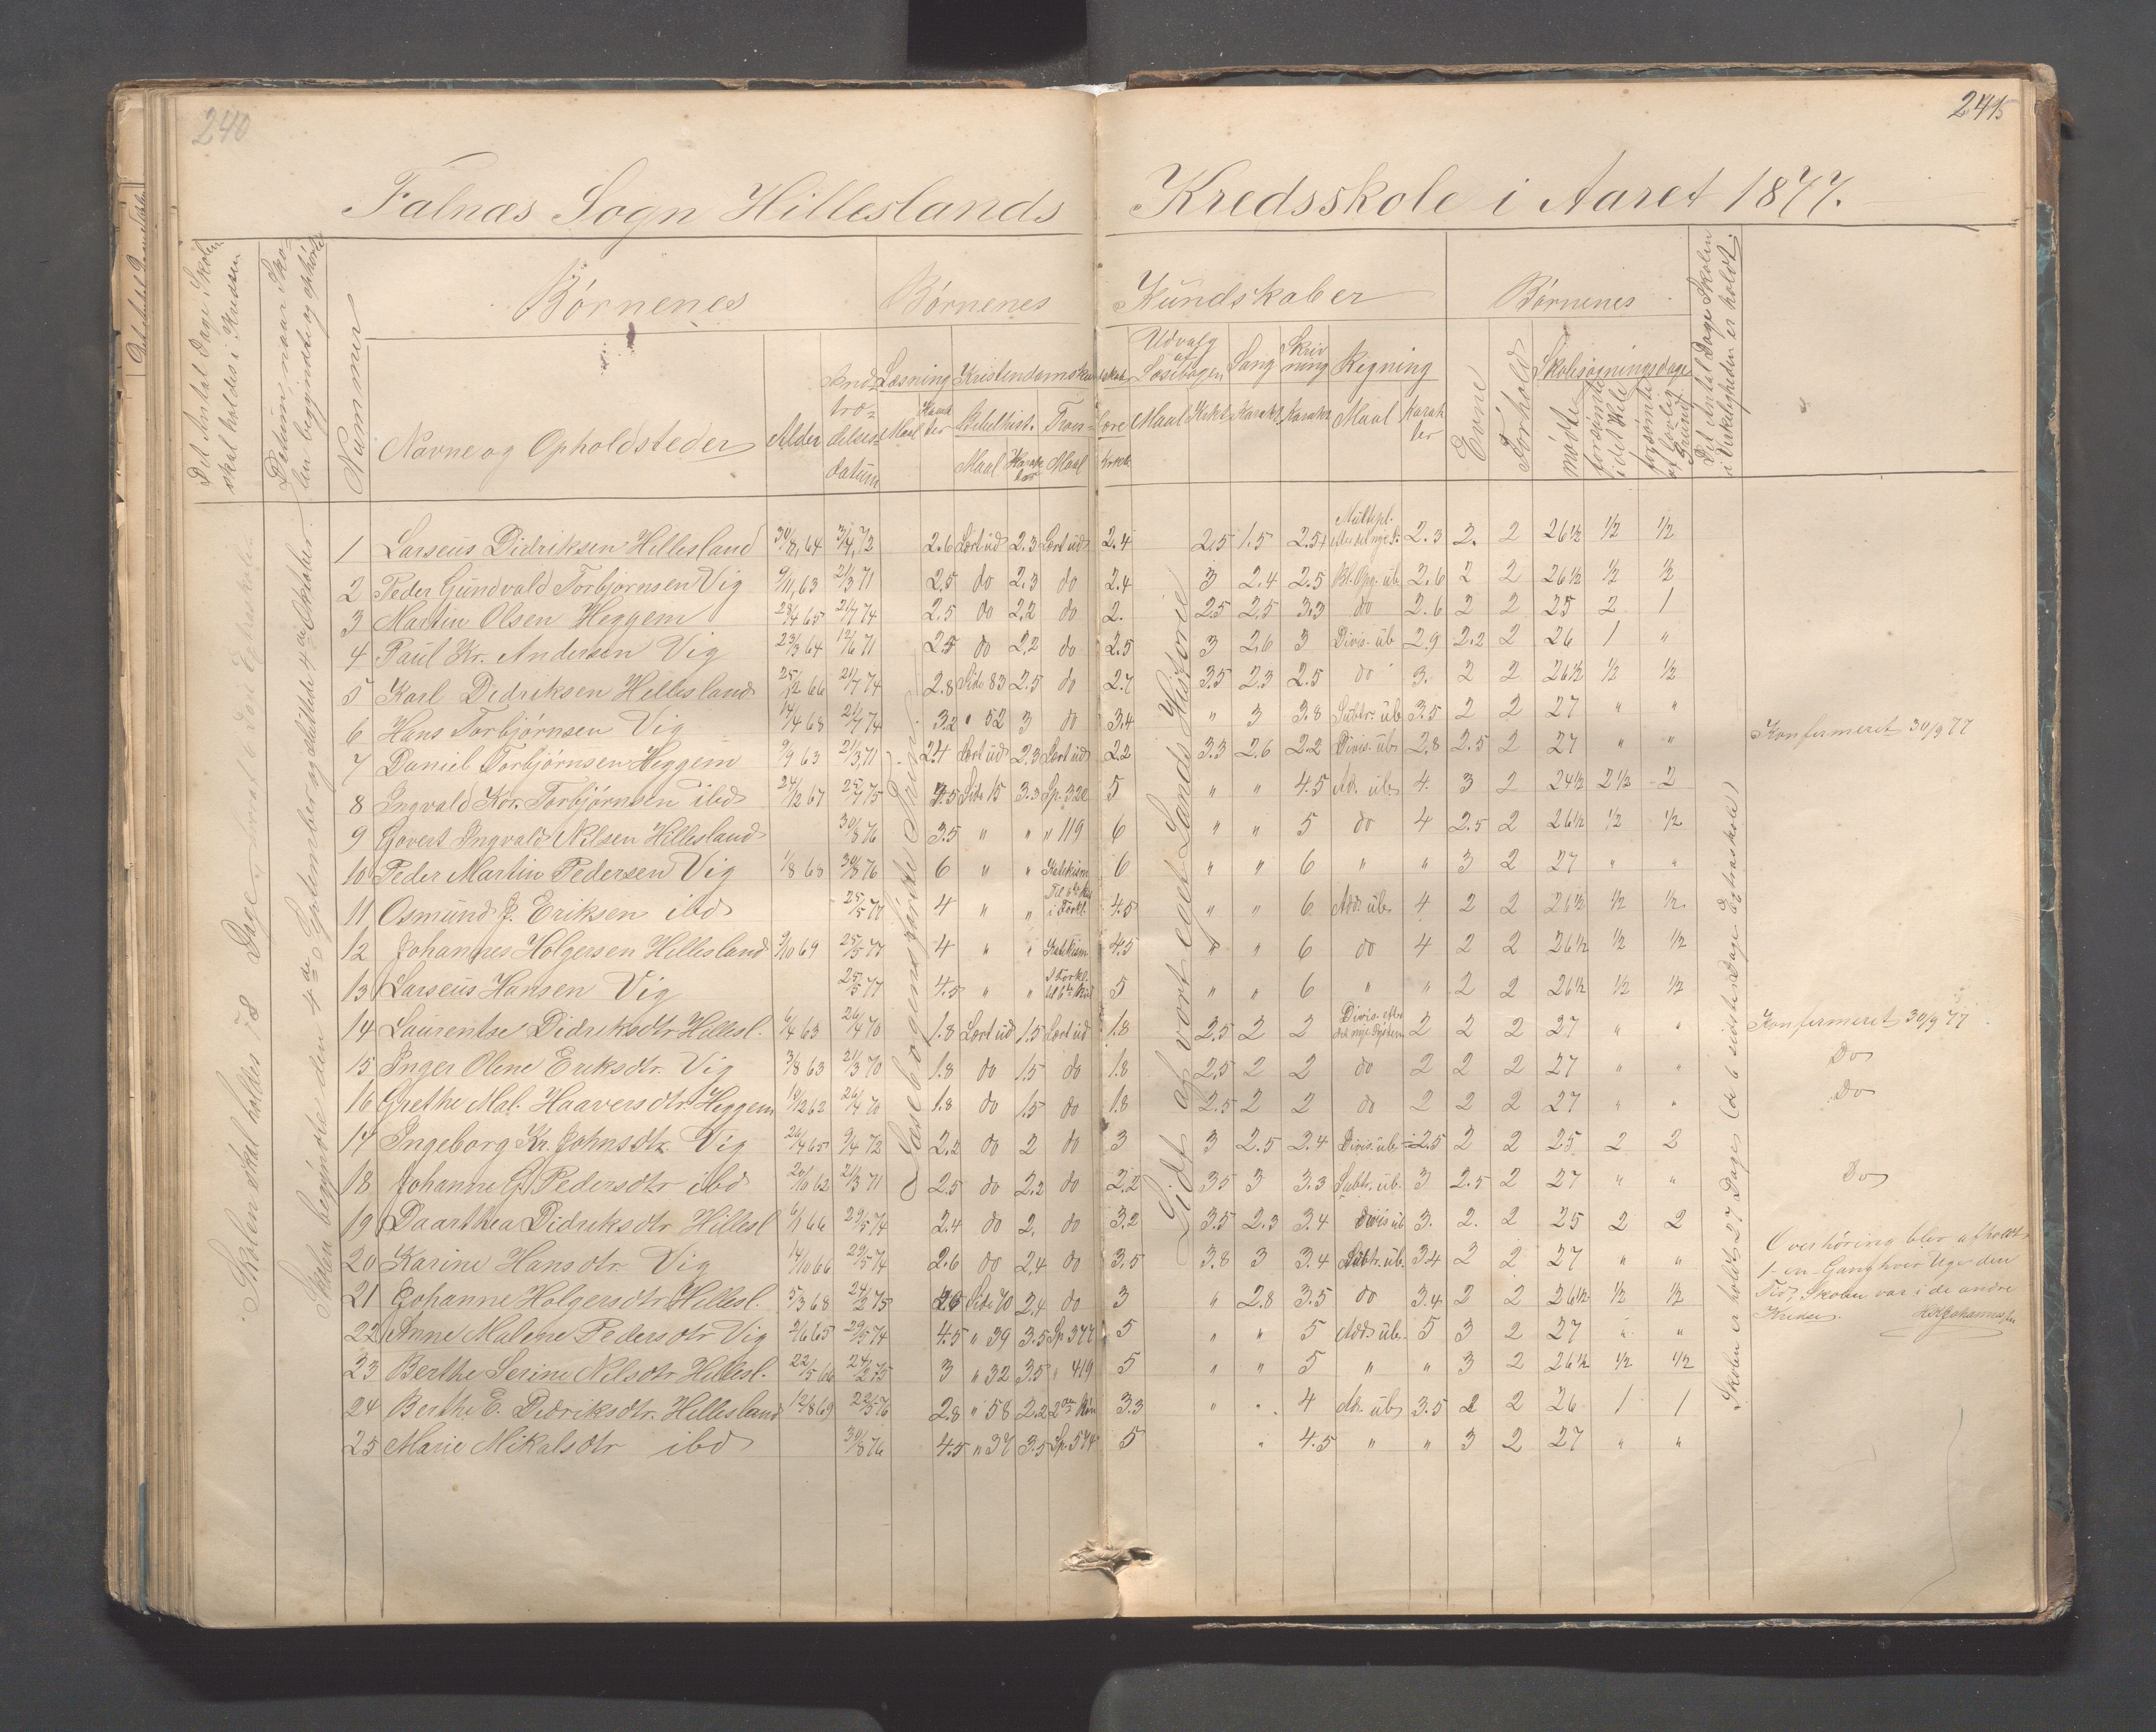 240
241
Falnæs Sogn Hilleslands Kredsskole i Aaret 1877.
Det Antal Dage Skolen skal holdes i Kredsen
Datum, naar Skolen begyndte og ophørte
Nummer
Børnenes
Børnenes Kundskaber
Børnenes
Det Antal Dage Skolen i Virkeligheden er holdt.
Navne og Opholdsteder
Alder
Indtrædelsesdatum
Læsning
Maal
Karakter
Kristendomskundskab
Bibelhist.
Maal
Karakter
Troeslære
Maal
Karakt.
Udvalg af Læsebogen
Maal
Karkt.
Sang
Karakt.
Skrivning
Karakt.
Regning
Maal
Karakter
Evne
Forhold
Skolesøgningsdage
mødte
forsømte i det Hele
forsømte af lovlig Grund
Skolen skal holdes 78 Dage
Skolen begyndte den 4de September og sluttede 4de Oktober.
Læsebogens
Lidt af vort eget Lands Historie
Skolen er holdt 27 Dage (de 6 sidste Dage Extraskole)
1 Larseus Didriksen Hillesland 30/8 64 3/4 72 2.6 Lært ud 2.3 Lært ud 2.4 2.5 1.5 2.5+ Multipl. efter det nye S. 2.3 2. 2 26½ ½ ½
2 Peder Gundvald Torbjørnsen Vig 9/11 63 21/3 71 2.5 do 2.3 do 2.4 3 2.4 2.5 Bl. Opg. üb. 2.6 2 2 26½ ½ ½
3 Martin Olsen Heggem 28/4 65 21/7 74 2.5 do 2.2 do 2. 2.5 2.5 3.3 do 2.6 2 2 25 2 1
4 Paul Kr. Andersen Vig 23/3 64 12/6 71 2.5 do 2.2 do 2.5 3 2.6 3 Divis. üb 2.9 2.2 2 26 1 "
5 Karl Didriksen Hillesland 25/12 66 21/7 74 2.8 Side 83 2.5 do 2.7 3.5 2.3 2.5 do 3. 2 2 26½ ½ ½
6 Hans Torbjørnsen Vig 14/4 68 21/7 74 3.2 " 52 3 do 3.4 " 3 3.8 Subtr. üb. 3.5 2 2 27 " "
7 Daniel Torbjørnsen Heggem 9/9 63 21/3 71 2.4 Lært ud 2.3 Lært ud 2.2 3.3 2.6 2.2 Divis. üb. 2.8 2.5 2 27 " " Konfermeret 30/9 77
8 Ingvald Kor. Torbjørnsen ibd 24/12 67 25/7 75 3.5 Side 15 3.3 Sp. 322 5 " " 4.5 Ad. üb. 4. 3 2 24½ 2½ 2
9 Govert Ingvald Nilsen Hillesland 30/8 76 3.5 " " " 119 6 " " 5 do 4 2.5 2 26½ ½ ½
10 Peder Martin Pedersen Vig 1/8 68 30/8 76 6 " " Katekism 6 " " 6 " " 3 2 27 " "
11 Osmund J. Eriksen ibd 25/5 77 4 " " 4.5 " " 6 Add. üb. 4 2 2 26½ ½ ½
12 Johannes Holgersen Hillesland 9/10 69 25/5 77 4 " " Katekism 4.5 " " 6 do 4 2 2 26½ ½ ½
13 Larseus Hansen Vig 25/5 77 4.5 " " 5 " " 6 " " 2 2 26½ ½ ½
14 Laurentse Didriksdtr Hillesl. 6/4 63 26/4 70 1.8 Lært ud 1.5 Lært ud 1.8 2.5 2 2 Divis. efter det nye System 2 2 2 27 " " Konfermeret 30/9 77
15 Inger Olene Eriksdtr. Vig 3/8 63 21/3 70 1.8 do 1.5 do 1.8 2.5 2 2 do 2 2 2 27 " " Do
16 Grethe Mal. Haaversdtr Heggem 13/12 62 26/4 70 1.8 do 1.5 do 1.8 2.5 2 2 do 2 2 2 27 " " Do
17 Ingeborg Kr. Johnsdtr. Vig 26/4 65 9/4 72 2.2 do 2 do 3 3 2.5 2.4 Divis. üb. 2.5 2 2 25 2 2
18 Johanne G. Pedersdtr ibd 20/10 62 21/3 71 2.5 do 2.2 do 2.2 3.5 3 3.3 Subtr. üb. 3 2.5 2 27 " " Do
19 Daarthea Didriksdtr Hillesl 6/1 66 29/5 74 2.4 do 2. do 3.2 3.5 2.3 3.4 Divis üb 3. 2. 2 25 2 2
20 Karine Hansdtr. Vig 14/10 66 29/5 74 2.6 do 2.4 do 3.5 3.8 3 3.4 Subtr. üb. 3.4 2 2 27 " "
21 Johanne Holgersdtr Hillesl. 5/3 68 24/2 75 2.6 Side 70 2.4 do 3 " 2.8 3.5 do 3.4. 2 2 26½ ½ ½
22 Anne Malene Pedersdtr Vig 2/6 65 29/5 74 4.5 " 39 3.5 Sp. 377 5 " " 5 Add. üb. 5 3 2 27 " "
23 Berthe Serine Nilsdtr Hillesl. 22/5 66 24/2 75 3 " 32 3.5 " 419 5 " " 5 " " 3 2 26½ ½ ½
24 Berthe E. Didriksdtr. Hillesland 12/8 69 22/5 76 2.8 " 58 2.2 3.3 " . 4 Ad. üb 3.5 2 2 26 1 1
25 Marie Mikalsdtr ibd 30/8 76 4.5 " 37 3.5 Sp. 574 5 " 4.5 " " 3 2 27 " "
Overhøring blev afholdt
1 en Gang hver Uge den
Tid, Skolen var i de andre
Kredse.